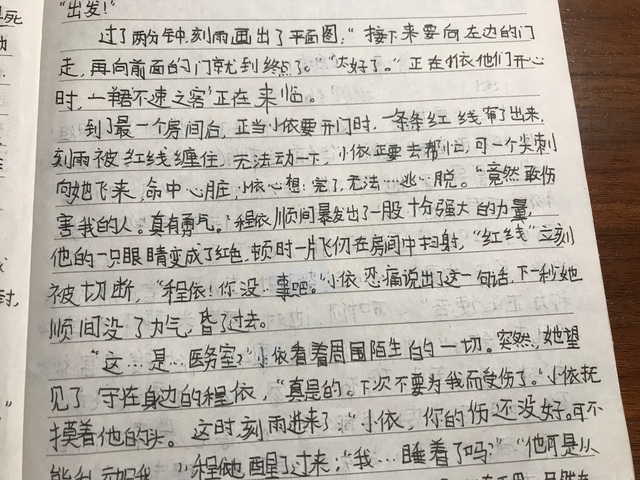 "出发!"
过了两分钟,刻雨画出了平面图,"接下来要向左边的门
走,再向前面的门就到终点了。""太好了。"正在小依他们开心
时,一群"不速之客"正在来临。
到了最一个房间后,正当小依要开门时,一条条红线窜了出来,
刻雨被红线缠住,无法动一下,小依正要去帮忙,可一个尖刺
向她飞来,命中心脏,小依心想:完了,无法…逃…脱。"竟然敢伤
害我的人。真有勇气。"程依顺间暴发出了一股十分强大的力量,
他的一只眼睛变成了红色,顿时一片飞仞在房间中扫射,"红线"立刻
被切断,"程依!你没…事吧。"小依忍痛说出了这一句话,下一秒她
顺间没了力气,昏了过去。
"这…是…医务室?"小依看着周围陌生的一切。突然,她望
见了守在身边的程依,"真是的。下次不要为我而受伤了。"小依抚
摸着他的头。这时刻雨进来了"小依,你的伤还没好。可不
能乱动哦。"程依醒了过来;"我…睡着了吗?""他可是从
死
封,